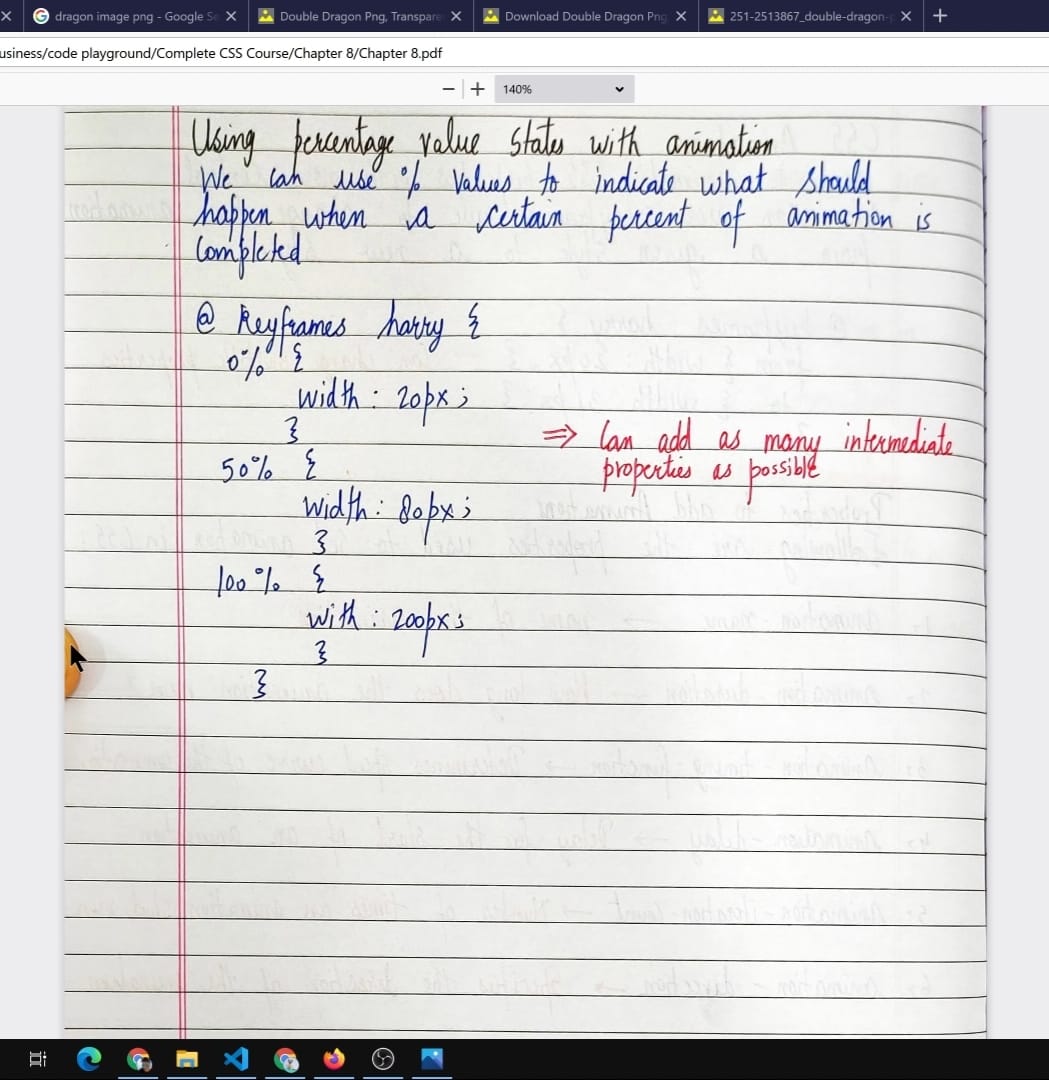 dragon image png - Google Se
Double Dragon Png, Transpare
Download Double Dragon Png
251-2513867_double-dragon-p
usiness/code playground/Complete CSS Course/Chapter 8/Chapter 8.pdf
140%
Using percentage value states with animation
We can use % values to indicate what should
happen when a certain percent of animation is
Completed
@ Keyframes harry {
0% {
width : 20px ;
}
⇒ Can add as many intermediate
properties as possible
50% {
width : 80px ;
}
100% {
with : 200px ;
}
}